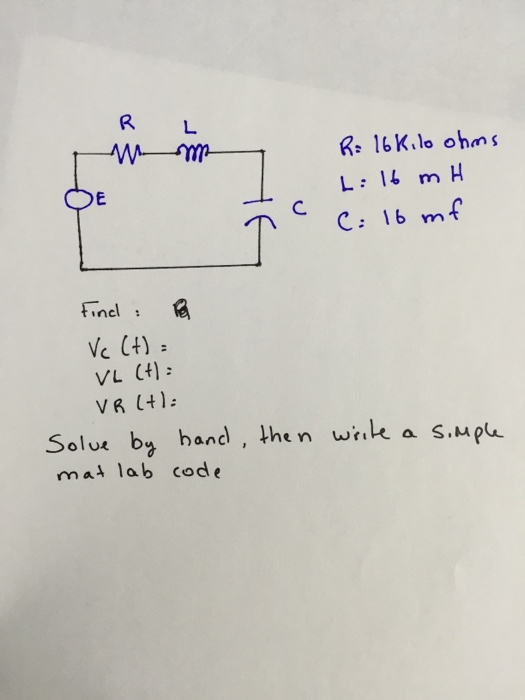 R L
E
C
R: 16 Kilo ohms
L: 16 m H
C: 16 mf
Find :
Vc (t) =
VL (t) =
VR (t) =
Solve by hand, then write a simple
mat lab code